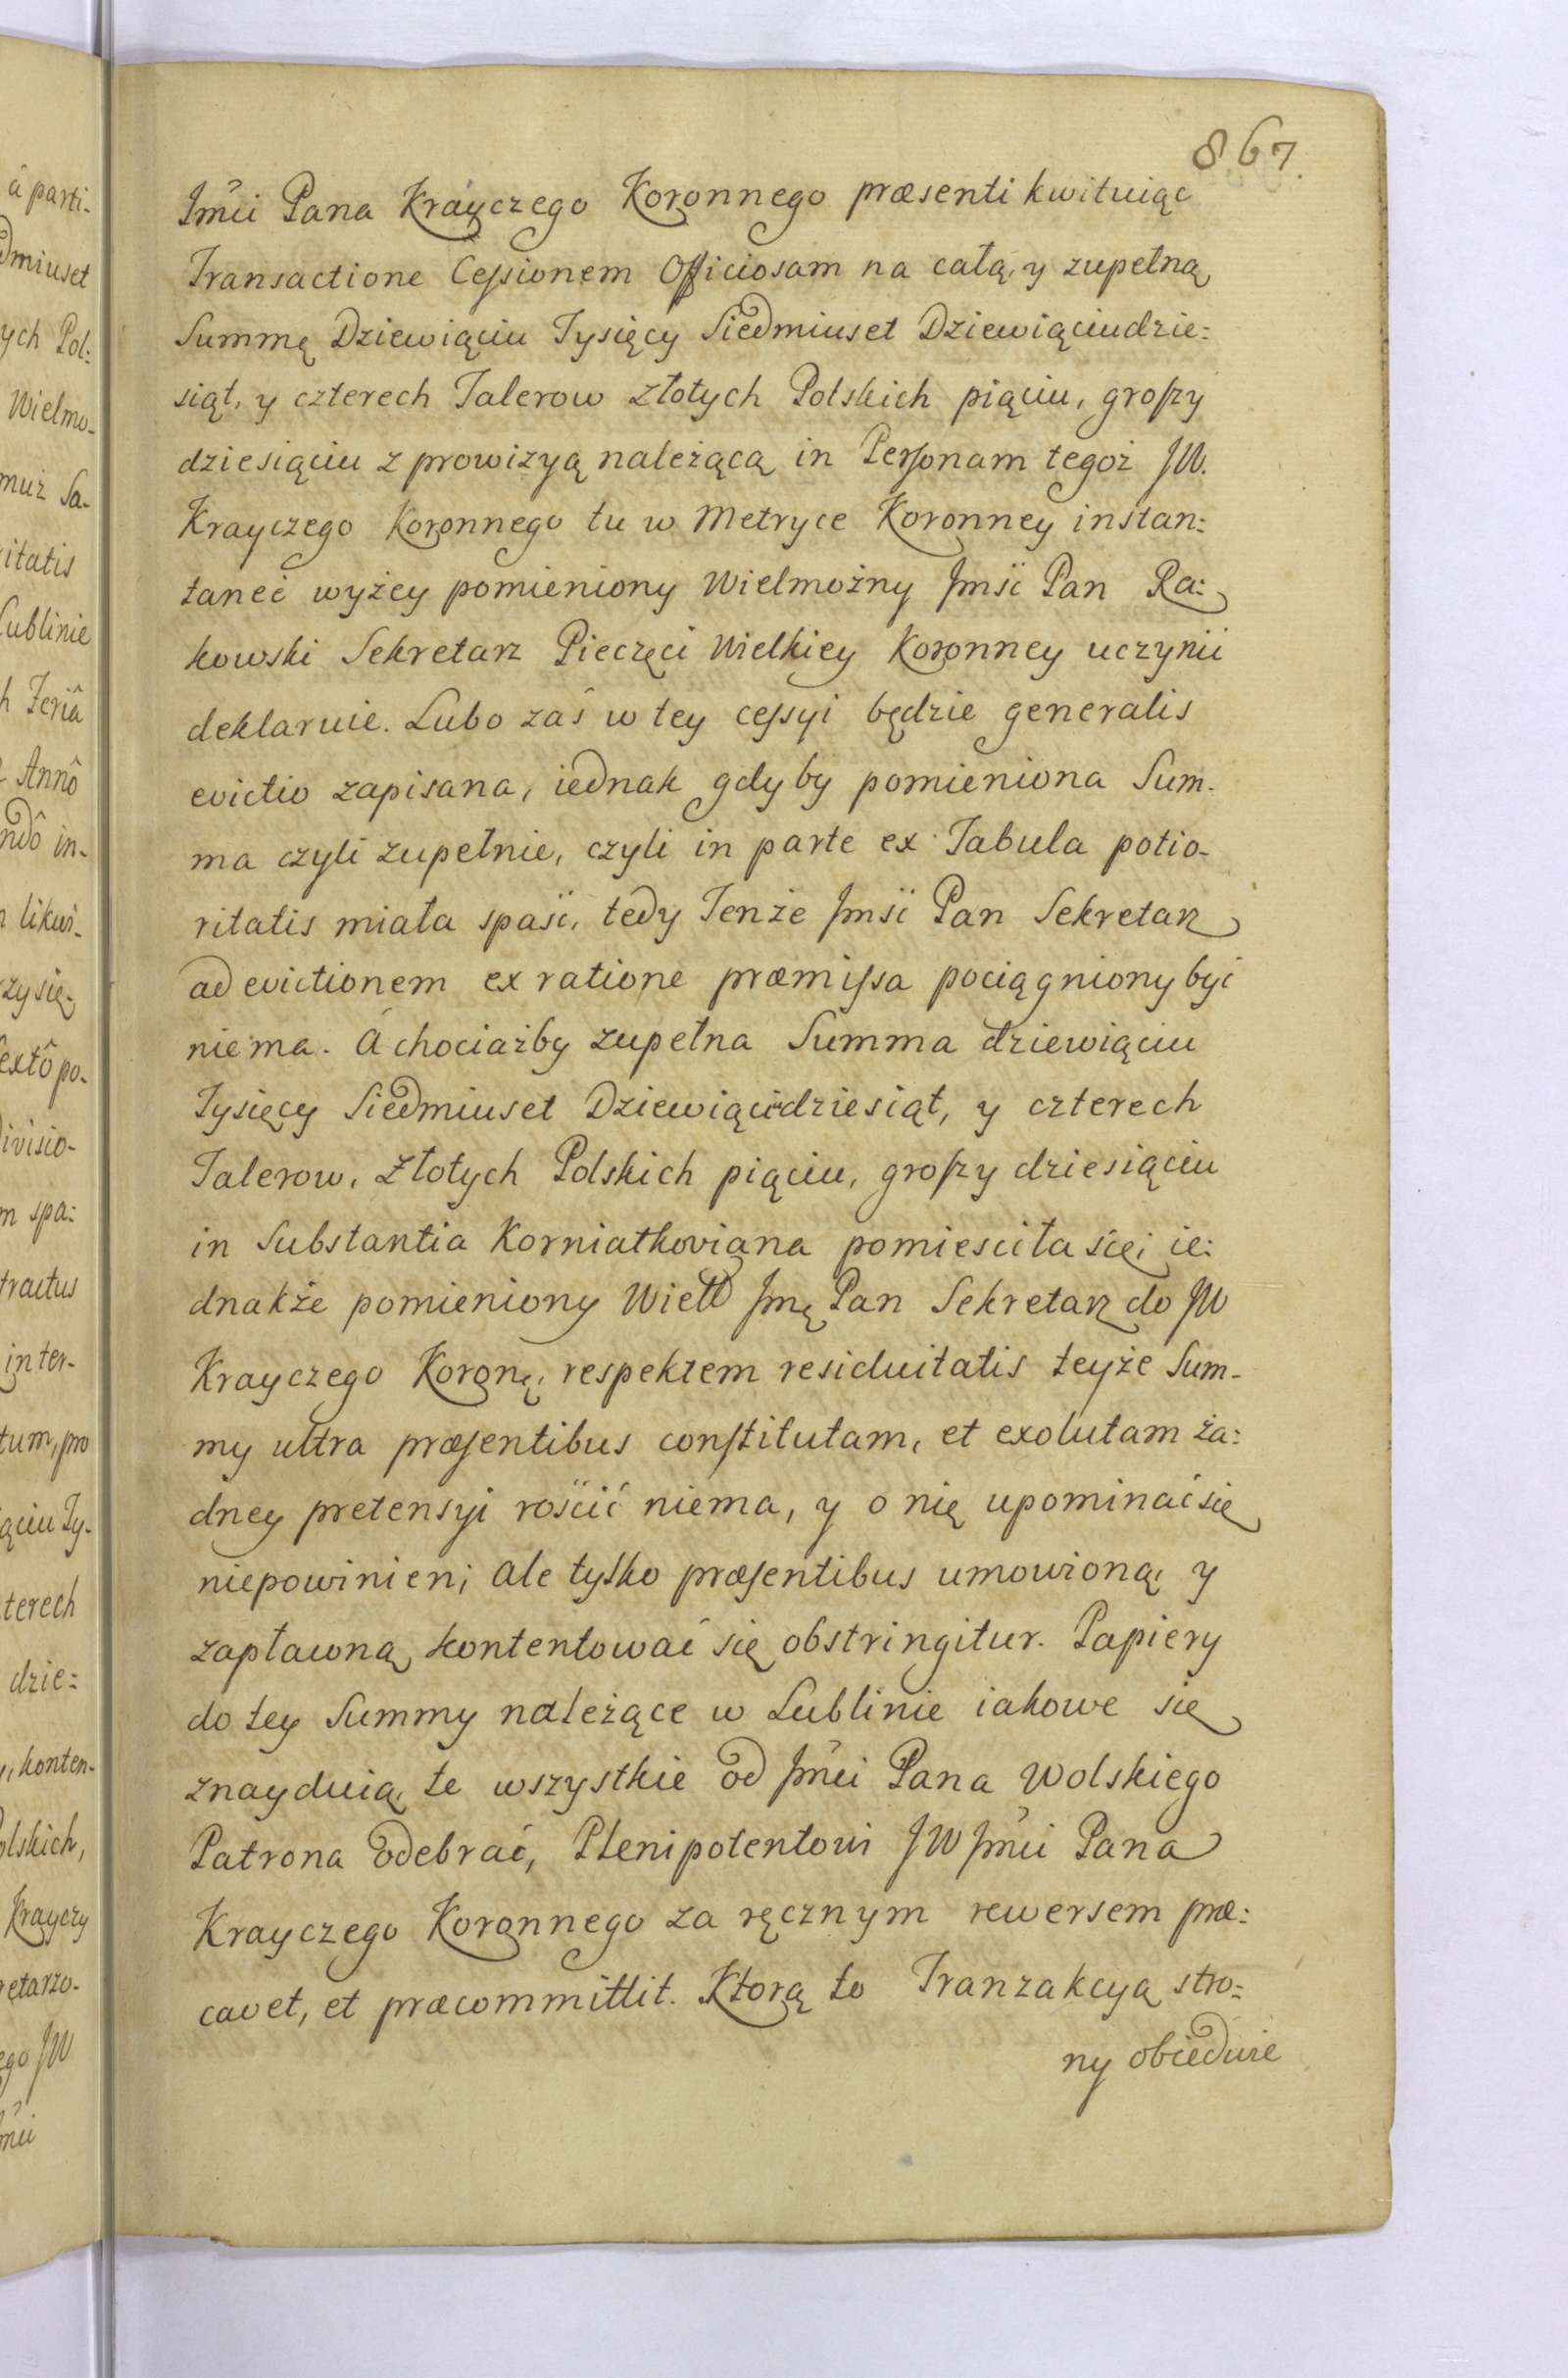 867.
Jmći Pana Krayczego Koronnego præsenti kwituiąc
Transactione Cessionem Officiosam na całą, y zupełną
Summę Dziewiąciu Tysięcy Siedmiuset Dziewiąciudzie:
siąt, y czterech Talerow złotych Polskich piąciu, groszy
dziesiąciu z prowizyą należącą in Personam tegoż JW.
Krayczego Koronnego tu w Metryce Koronney instan:
taneć wyżey pomieniony Wielmożny Jmść Pan Ra:
kowski Sekretarz Pieczęci Wielkiey Koronney uczynić
deklaruie. Lubo zaś w tey cessyi będzie generalis
evictio zapisana, iednak gdyby pomieniona Sum-
ma czyli zupełnie, czyli in parte ex Tabula potio-
ritatis miała spaść, tedy Tenże Jmść Pan Sekretarz
ad evictionem ex ratione præmissa pociągniony być
niema. A chociażby zupełna Summa dziewiąciu
Tysięcy Siedmiuset Dziewiąciudziesiąt, y czterech
Talerow, Złotych Polskich piąciu, groszy dziesiąciu
in Substantia Korniatkoviana pomieściła się, ie:
dnakże pomieniony Wiel Jmę Pan Sekretarz do JW
Krayczego Koronę, respektem residuitatis teyże Sum-
my ultra præsentibus constitutam, et exolutam ża:
dney pretensyi rościć niema, y o nię upominać się
niepowinien; ale tylko præsentibus umowioną, y
zapławną kontentować się obstringitur. Papiery
do tey Summy należące w Lublinie iakowe się
znayduią, te wszystkie od Jmći Pana Wolskiego
Patrona odebrać, Plenipotentowi JW Jmći Pana
Krayczego Koronnego za ręcznym rewersem præ:
cavet, et præcommittit. Ktorą to Tranzakcyą stro:
ny obiedwie
à parti-
dmiuset
ych Pol:
Wielmo-
muż Sa-
itatis
Lublinie
h Feriâ
Annô
ndô in-
likwi-
zy się
extô po-
ivisio-
m spa:
tractus
inter-
tum, pro
ąciu Ty-
terech
dzie:
konten-
olskich,
Krayczy
retarzo-
ego JW
mći